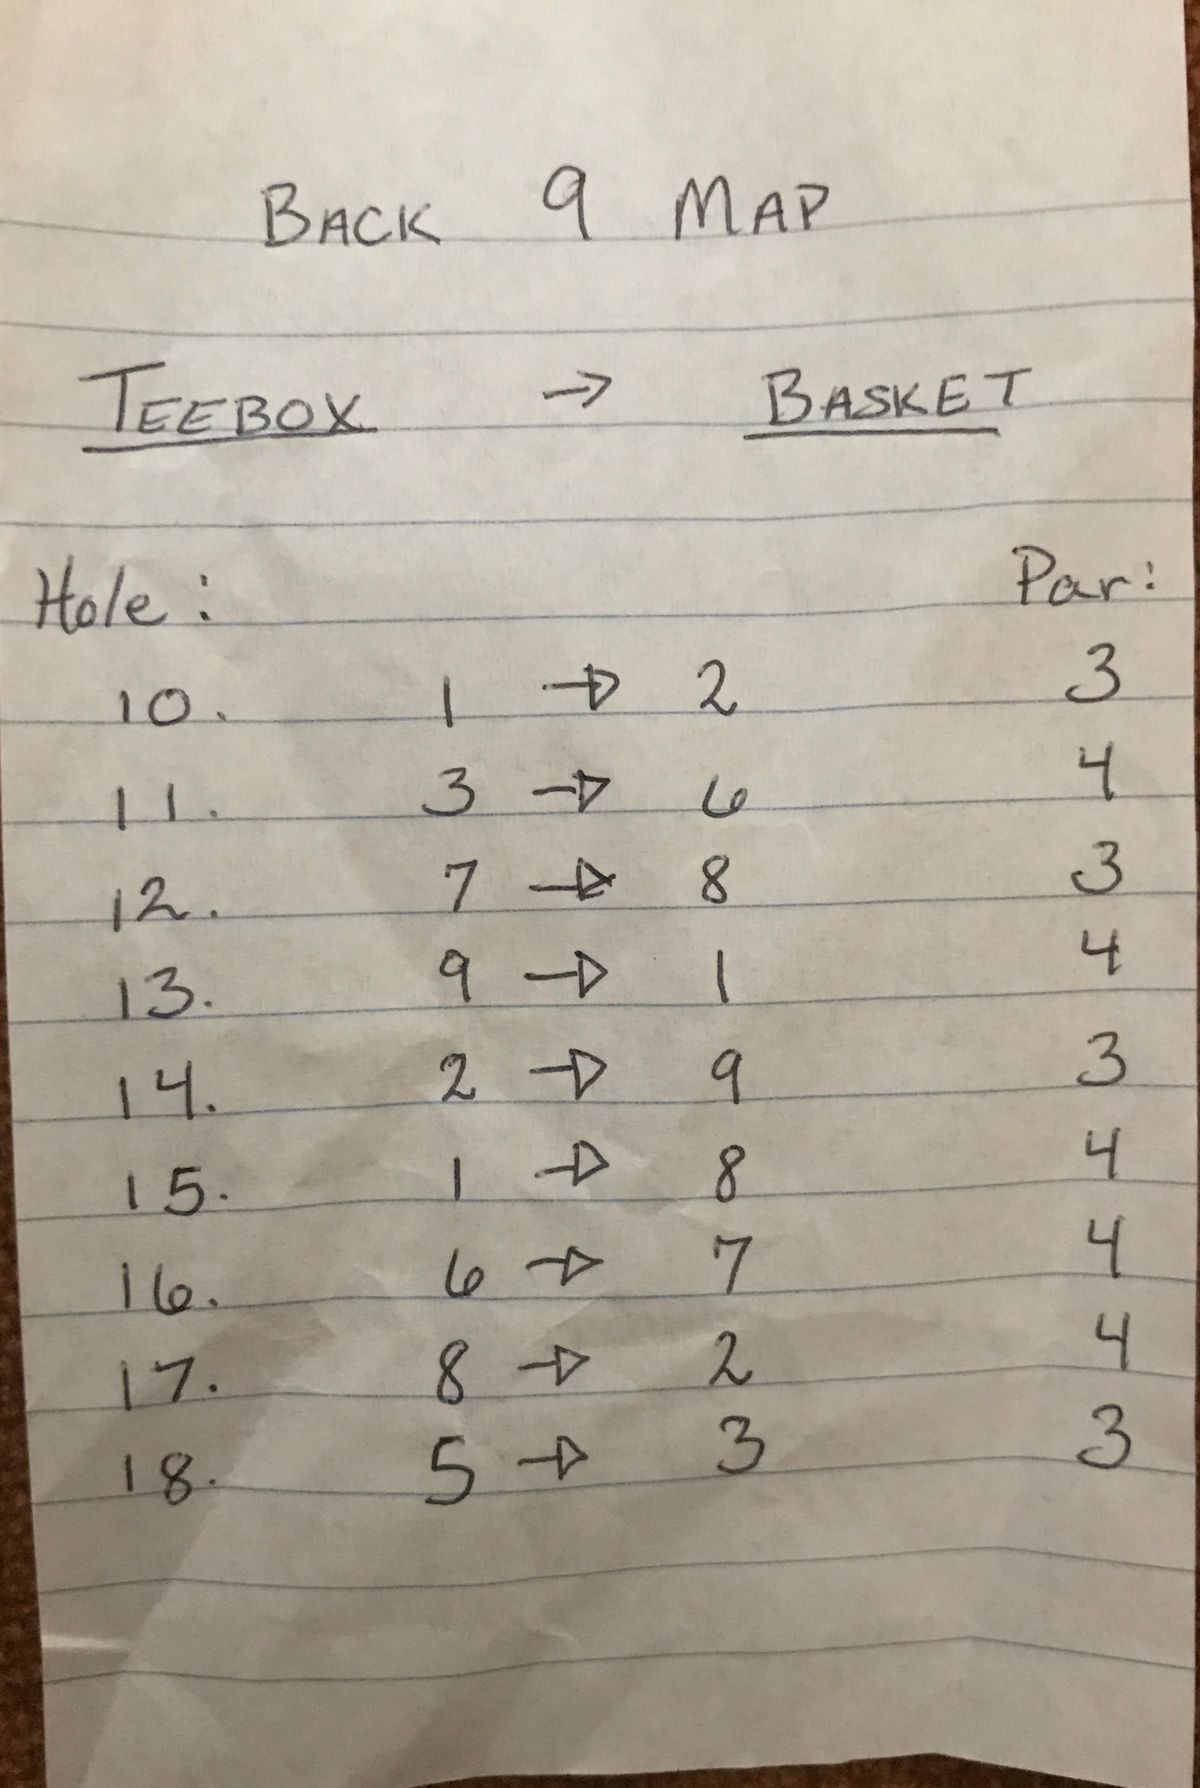 BACK 9 MAP
TEEBOX → BASKET
Hole: Par:
10. 1 → 2 3
11. 3 → 6 4
12. 7 → 8 3
13. 9 → 1 4
14. 2 → 9 3
15. 1 → 8 4
16. 6 → 7 4
17. 8 → 2 4
18. 5 → 3 3